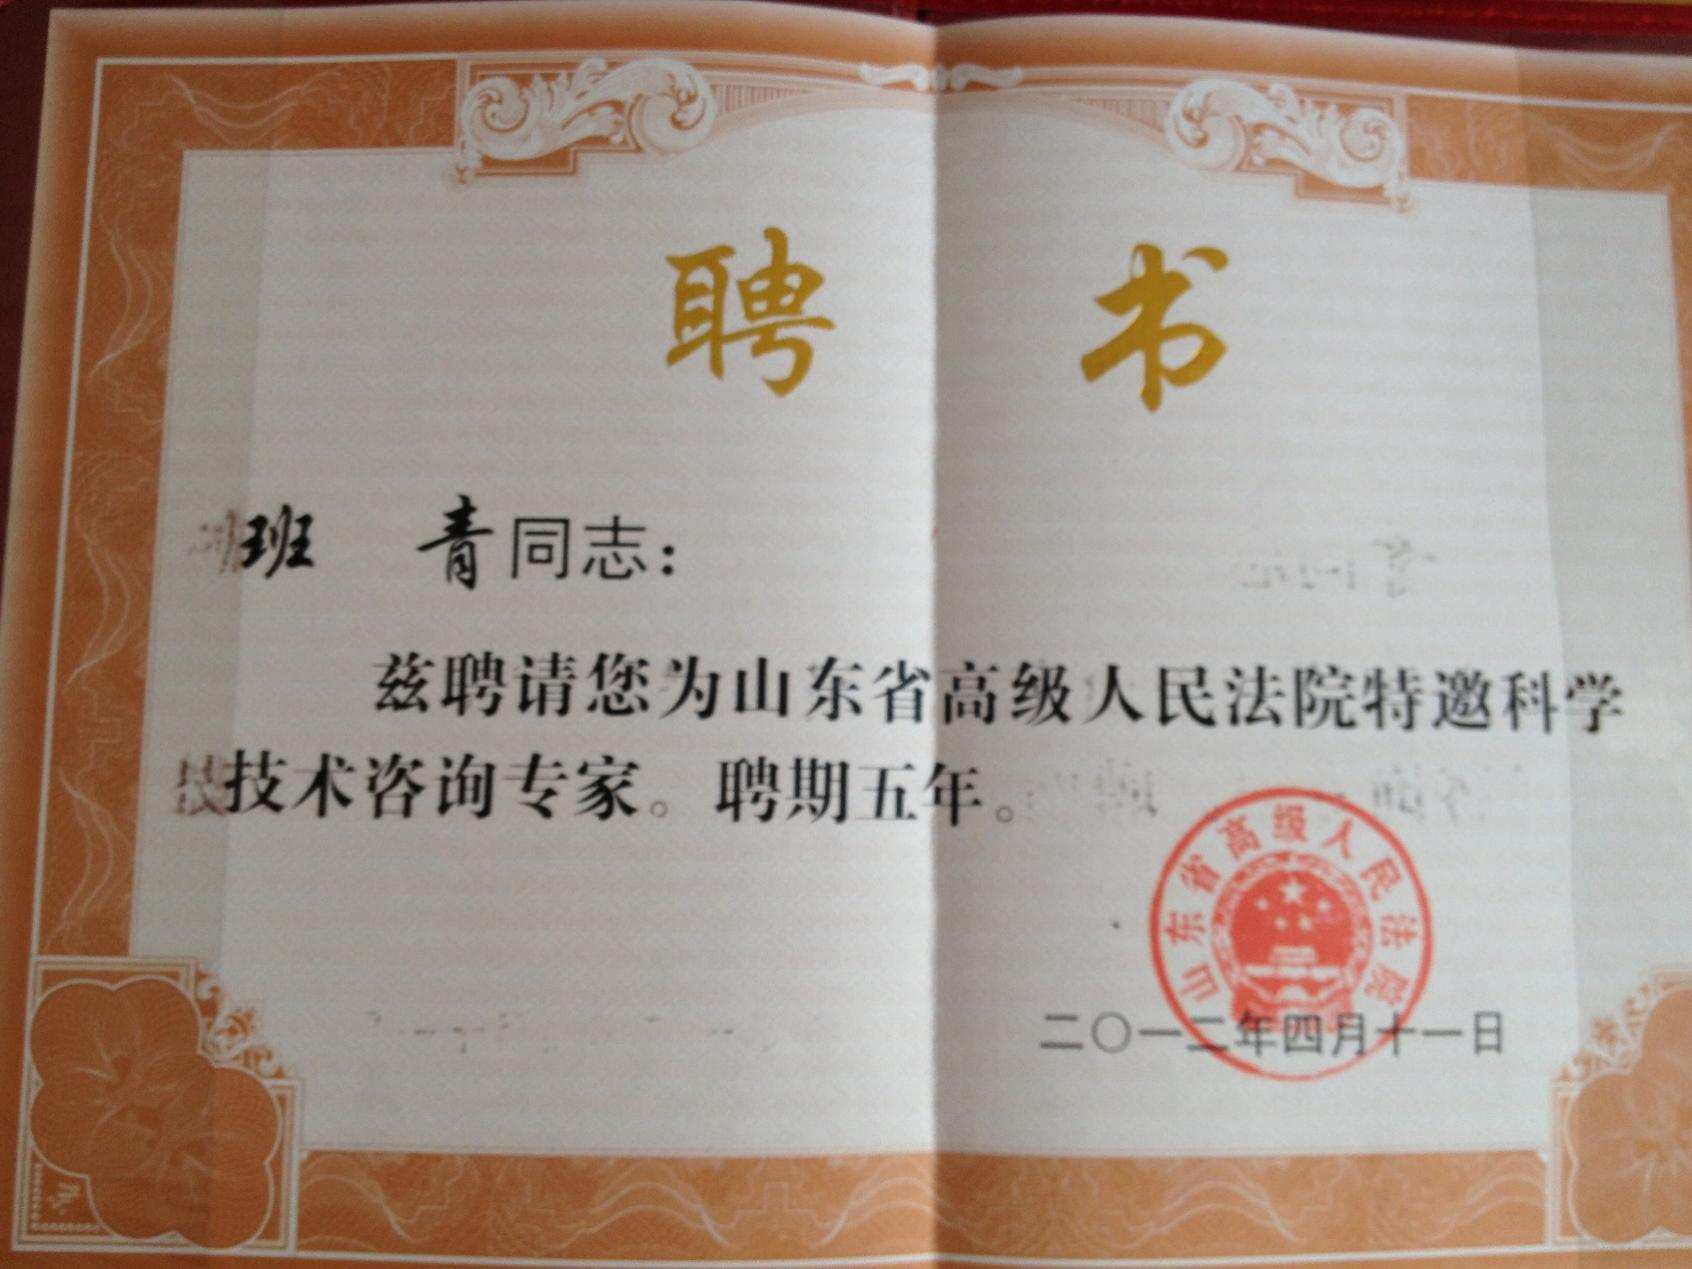 聘 书
班 青同志：
兹聘请您为山东省高级人民法院特邀科学
技术咨询专家。聘期五年。
山东省高级人民法院
二〇一二年四月十一日